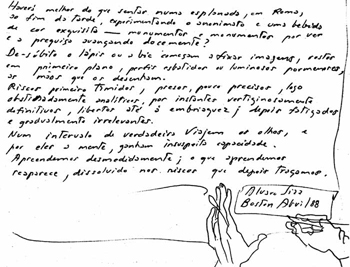 Haverá melhor do que sentar numa esplanada, em Roma,
ao fim da tarde, experimentando o anonimato e uma bebida
de cor esquisita — monumentos e monumentos por ver
e a preguiça avançando docemente?
De súbito o lápis ou a bic começam a fixar imagens, rostos
em primeiro plano, perfis esbatidos ou luminosos pormenores,
as mãos que os desenham.
Riscos primeiro tímidos, presos, pouco precisos, logo
obstinadamente analíticos, por instantes vertiginosamente
definitivos, libertos até à embriaguez; depois fatigados
e gradualmente irrelevantes.
Num intervalo de verdadeira Viajem os olhos, e
por eles a mente, ganham insuspeita capacidade.
Aprendemos desmedidamente; o que aprendemos
reaparece, dissolvido nos riscos que depois traçamos.
Alvaro Siza
Boston Abril 88